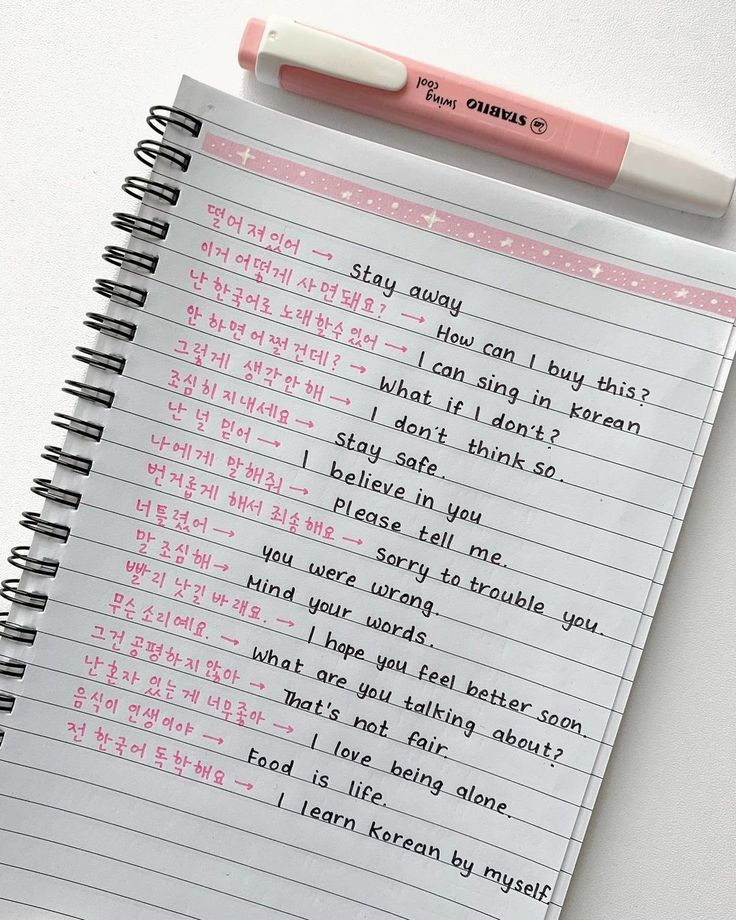 STABILO swing cool
떨어져있어 → Stay away
이거 어떻게 사면돼요? → How can I buy this?
난 한국어로 노래할수있어 → I can sing in Korean
안 하면 어쩔건데? → What if I don't?
그렇게 생각안해 → I don't think so.
조심히지내세요 → Stay safe.
난 널 믿어 → I believe in you
나에게 말해줘 → Please tell me.
번거롭게 해서 죄송해요 → Sorry to trouble you.
너틀렸어 → you were wrong.
말 조심해 → Mind your words.
빨리 낫길 바래요. → I hope you feel better soon.
무슨소리예요. → What are you talking about?
그건 공평하지 않아 → That's not fair.
난혼자 있는게 너무좋아 → I love being alone.
음식이 인생이야 → Food is life.
전 한국어 독학해요 → I learn Korean by myself.